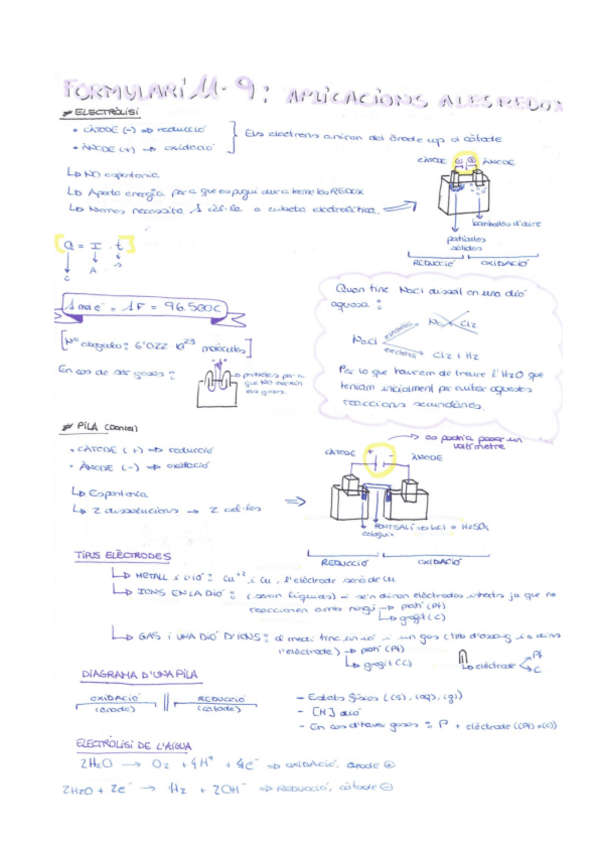 FORMULARI U-9: APLICACIONS A LES REDOX
ELECTRÒLISI
• CÀTODE (-) ⇒ reducció
• ÀNODE (+) → oxidació
Els electrons aniran del ànode cap al càtode
↳ NO espontania
↳ Aporto energia per a que es pugui dur a terme les REDOX
↳ Només necessite 1 cel·le o cubeta electrolítica
CÀTODE ⊖ ⊕ ÀNODE
bombolles d'aire
partícules sòlides
REDUCCIÓ OXIDACIÓ
[Q = I · t]
C A s
1 mol e⁻ = 1F = 96.500C
[Nº avogadro: 6'022 10²³ molècules]
En cas de ser gasos:
provetes per a que NO marxin els gasos.
Quan tinc NaCl dissol en una dió aquosa:
NaCl
Na Cl2
electròlisi Cl2 i H2
Per lo que haurem de traure l'H2O que teníem inicialment per evitar aquestes reaccions secundàries.
PILA (Daniel)
• CÀTODE (+) ⇒ reducció
• ÀNODE (-) ⇒ oxidació
↳ Espontania
↳ 2 dissolucions → 2 cel·les
→ es podria posar un voltímetre
CÀTODE + - ÀNODE
PONT SALÍ ⇒ KCl o H2SO4
REDUCCIÓ OXIDACIÓ
TIPUS ELÈCTRODES
↳ METALL i L'IÓ: Cu⁺² i Cu, l'elèctrode serà de Cu
↳ IONS EN LA DIÓ: (seran líquids) i se'n diran elèctrodes inherts ja que no reaccionen amb ningú → platí (Pt)
↳ grafit (C)
↳ GAS i UNA DIÓ D'IONS: al medi tinc un ió i un gas (tub d'assaig i a dins l'elèctrode) → platí (Pt)
↳ grafit (C)
↳ elèctrode Pt C
DIAGRAMA D'UNA PILA
OXIDACIÓ (ànode) || REDUCCIÓ (càtode)
- Estats físics ((s), (aq), (g))
- [M] dió
- En cas d'haver gasos: P + elèctrode ((Pt) o (C))
ELECTRÒLISI DE L'AIGUA
2H2O → O2 + 4H⁺ + 4e⁻ ⇒ OXIDACIÓ, ànode ⊕
2H2O + 2e⁻ → H2 + 2OH⁻ ⇒ REDUCCIÓ, càtode ⊖